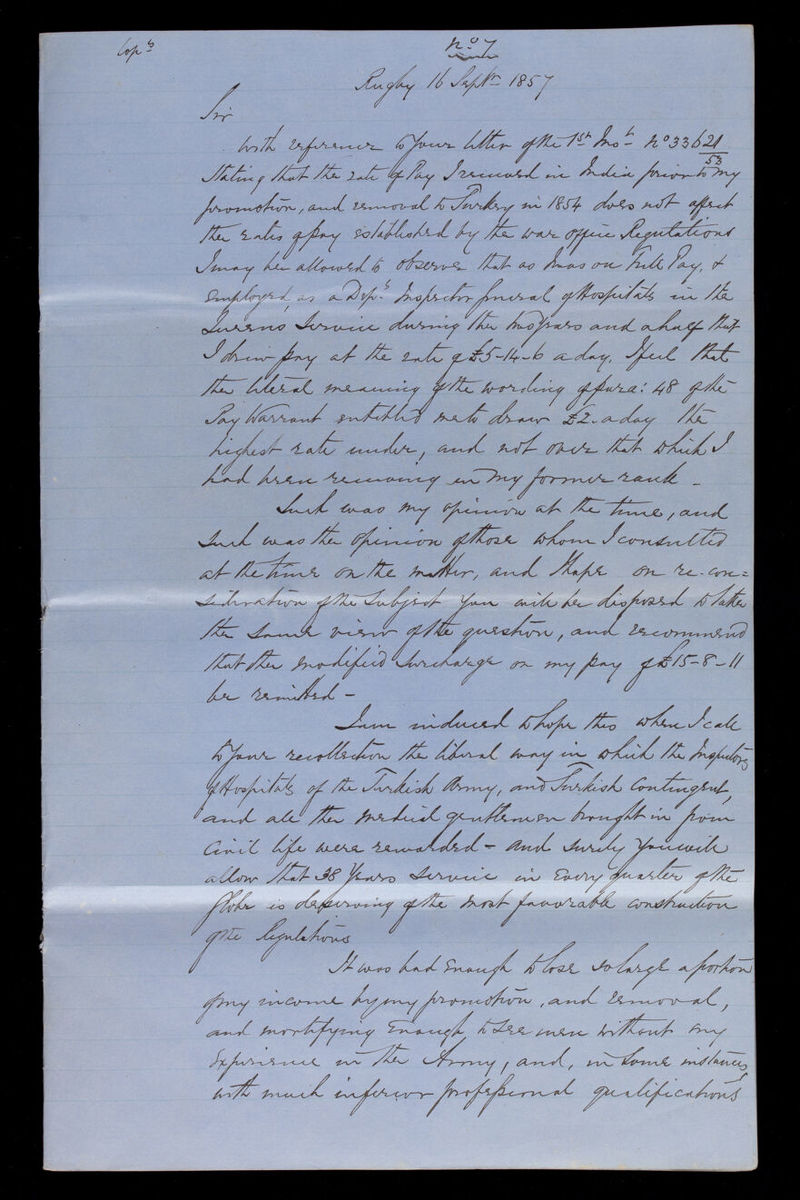 Copy
No. 7
Rugby 16 Septr 1857
Sir
With reference to your letter of the 1st Inst No 33621/53
stating that the rate of Pay I received in India prior to my
promotion, and removal to Turkey in 1854 does not affect
the rates of pay established by the War Office Regulations
I may be allowed to observe that as I was on Full Pay, &
employed, as a Depy Inspector General of Hospitals in the
Queens Service during the two years and a half that
I drew pay at the rate of £5-14-6 a day, I feel that
the literal meaning of the wording of para: 48 of the
Pay Warrant entitled me to draw £2. a day the
highest rate under, and not over that which I
had been receiving in my former rank -
Such was my opinion at the time, and
such was the opinion of those whom I consulted
at the time on the matter, and I hope on re-con=
sideration of the subject you will be disposed to take
the same view of the question, and recommend
that the modified surcharge on my pay of £15-8-11
be remitted -
I am induced to hope this when I call
to your recollection the liberal way in which the Inspectors
of Hospitals of the Turkish Army, and Turkish Contingent,
and all the medical gentlemen brought in from
Civil life were rewarded - and surely you will
allow that 38 Years service in every quarter of the
Globe is deserving of the most favorable construction
of the Regulations
It was bad enough to lose so large a portion
of my income by my promotion, and removal,
and mortifying enough to see men without my
experience in the Army, and, in some instances
with much inferior professional qualifications